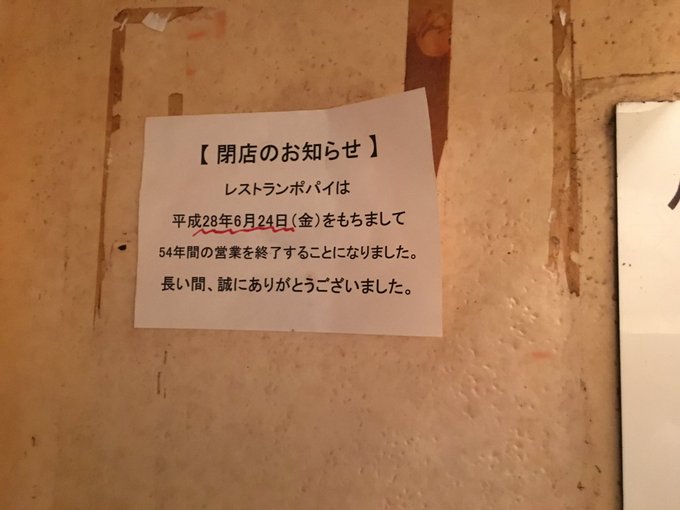 【 閉店のお知らせ 】
レストランポパイは
平成28年6月24日(金)をもちまして
54年間の営業を終了することになりました。
長い間、誠にありがとうございました。